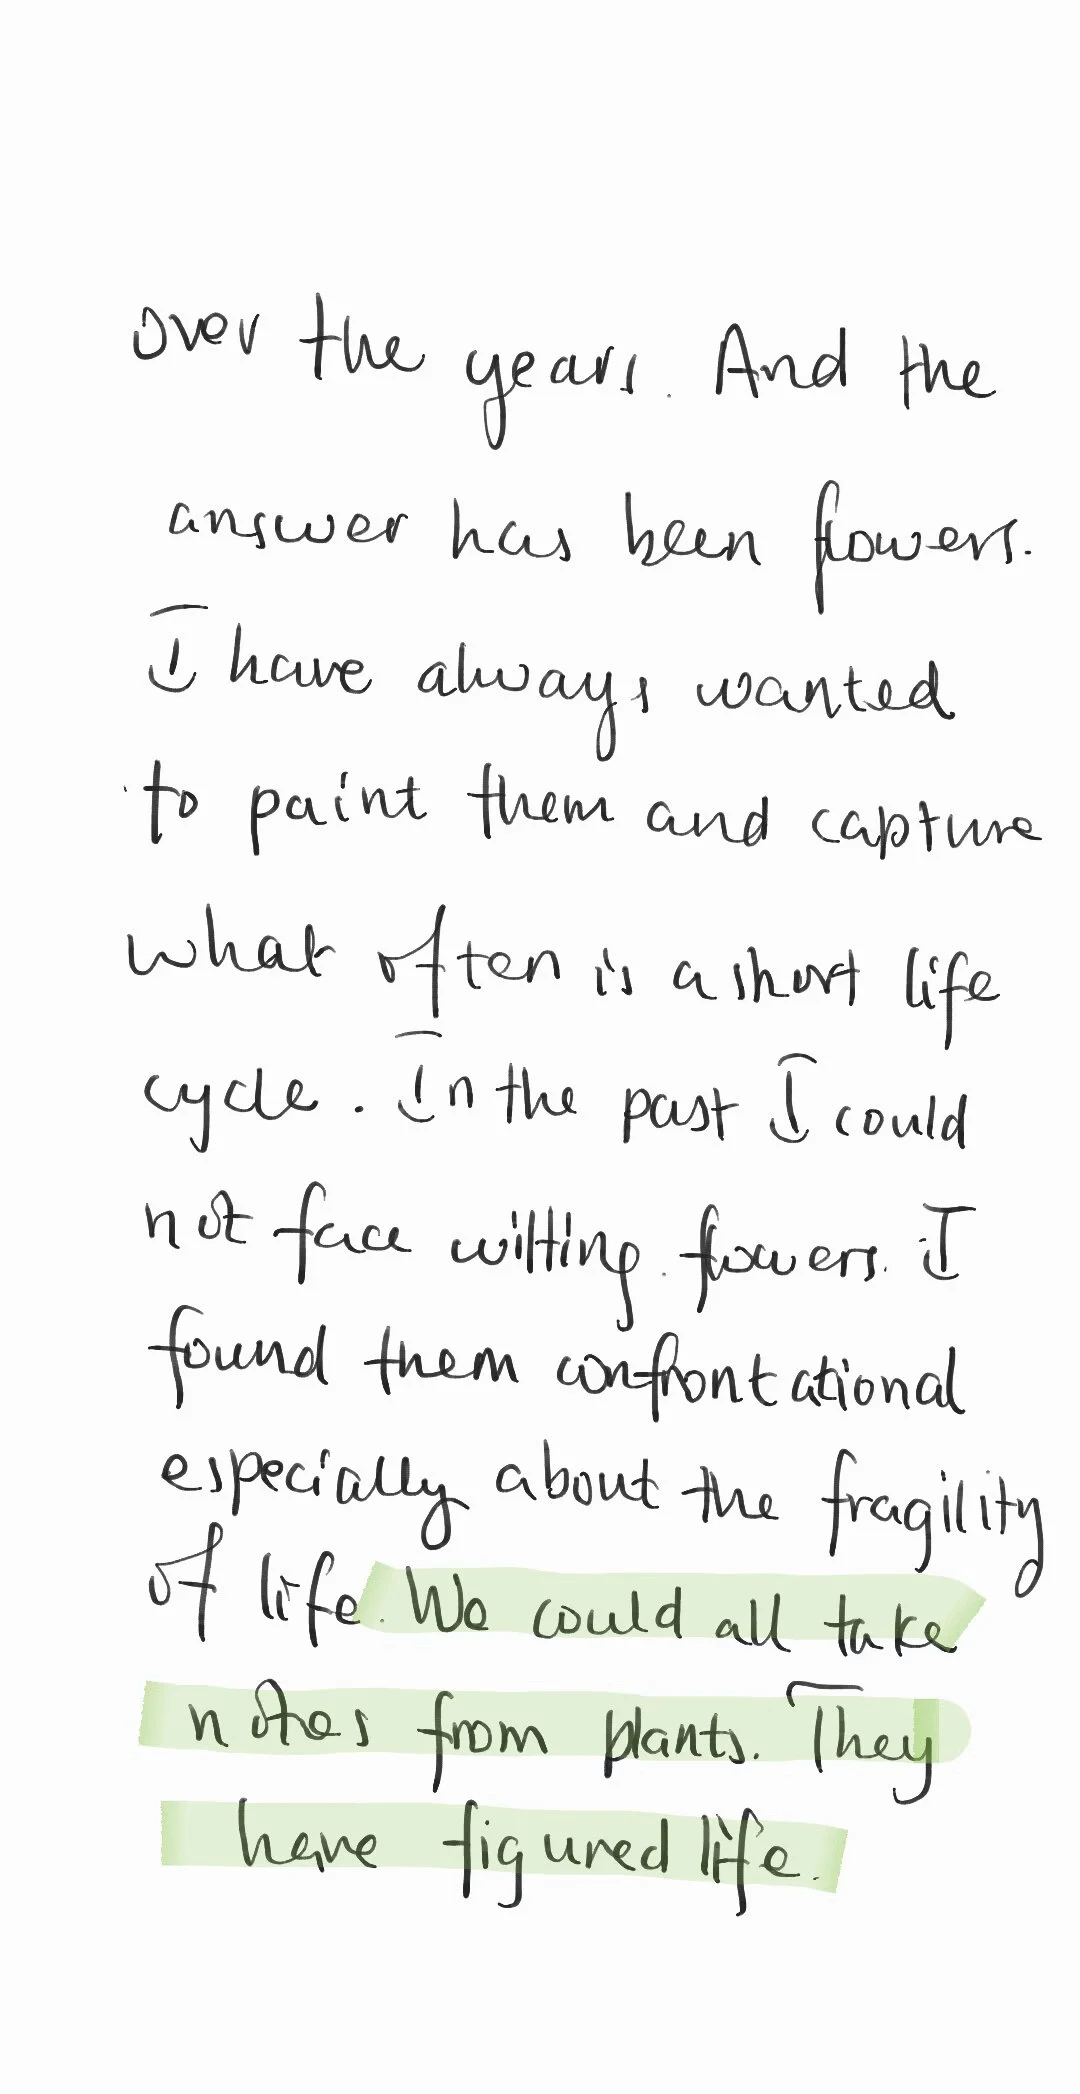 over the years. And the
answer has been flowers.
I have always wanted
to paint them and capture
what often is a short life
cycle. In the past I could
not face wilting flowers. I
found them confrontational
especially about the fragility
of life. We could all take
notes from plants. They
have figured life.